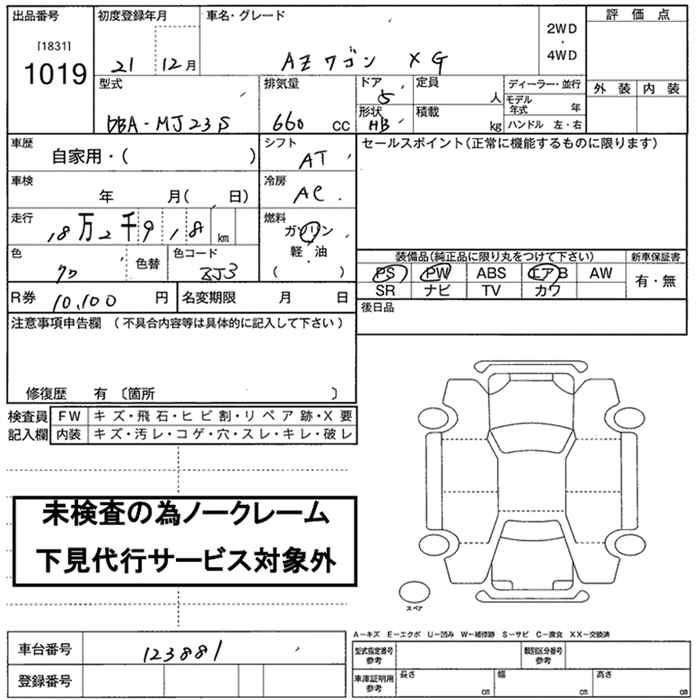 出品番号 初度登録年月 車名・グレード 2WD・4WD 評価点
[1831]
1019
21 12月 AZワゴン XG
型式 排気量 ドア 定員 ディーラー・並行 外装 内装
DBA-MJ23S 660 CC 5 人 モデル年式 年
形状 HB 積載 kg ハンドル 左・右
車歴 自家用・( ) シフト AT セールスポイント(正常に機能するものに限ります)
車検 年 月( 日) 冷房 AC
走行 18万2千9,18 km 燃料 ガソリン 軽・油 ( )
色 クロ 色替 色コード ZJ3
装備品(純正品に限り丸をつけて下さい) 新車保証書
PS PW ABS エアB AW 有・無
SR ナビ TV カワ
R券 10,100 円 名変期限 月 日 後日品
注意事項申告欄 (不具合内容等は具体的に記入して下さい)
修復歴 有 〔箇所 〕
検査員記入欄 FW キズ・飛石・ヒビ割・リペア跡・X要
内装 キズ・汚レ・コゲ・穴・スレ・キレ・破レ
未検査の為ノークレーム
下見代行サービス対象外
スペア
A-キズ E-エクボ U-凹み W-補修跡 S-サビ C-腐食 XX-交換済
車台番号 123881 型式指定番号参考 類別区分番号参考
登録番号 車庫証明用参考 長さ cm 幅 cm 高さ cm